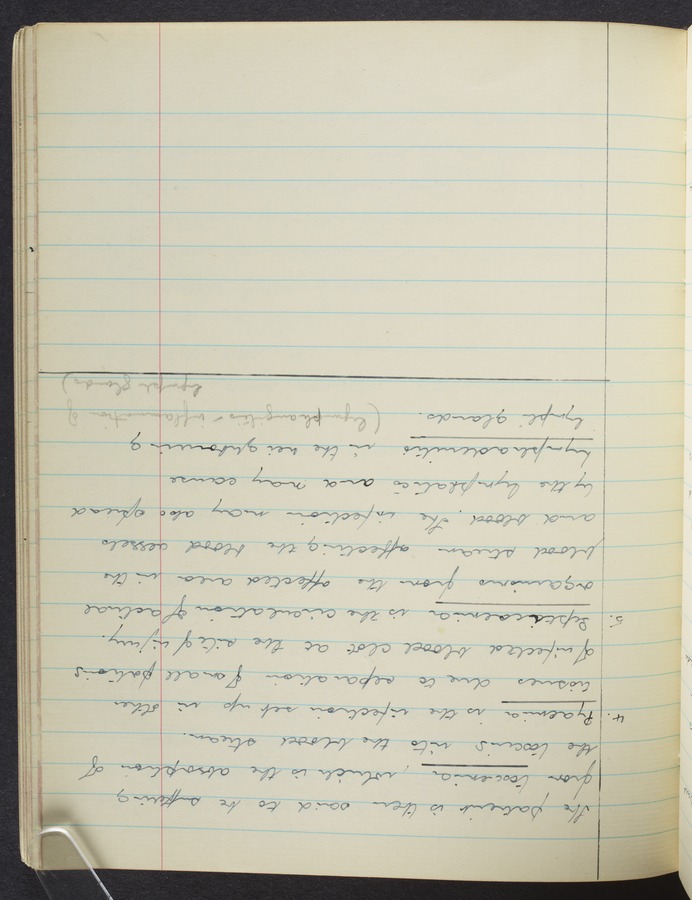 the patient is then said to be suffering
from toxaemia, which is the absorption of
the toxins into the blood stream.
4. Pyaemia is the infection set up in other
tissues due to separation of small portions
of infected blood clot at the site of injury.
5. Septicaemia is the circulation of actual
organisms from the affected area in the
blood stream affecting the blood vessels
and blood. The infection may also spread
by the lymphatics and may cause
lymphadenitis in the neighbouring
lymph glands. (lymphangitis - inflammation of
lymph glands)